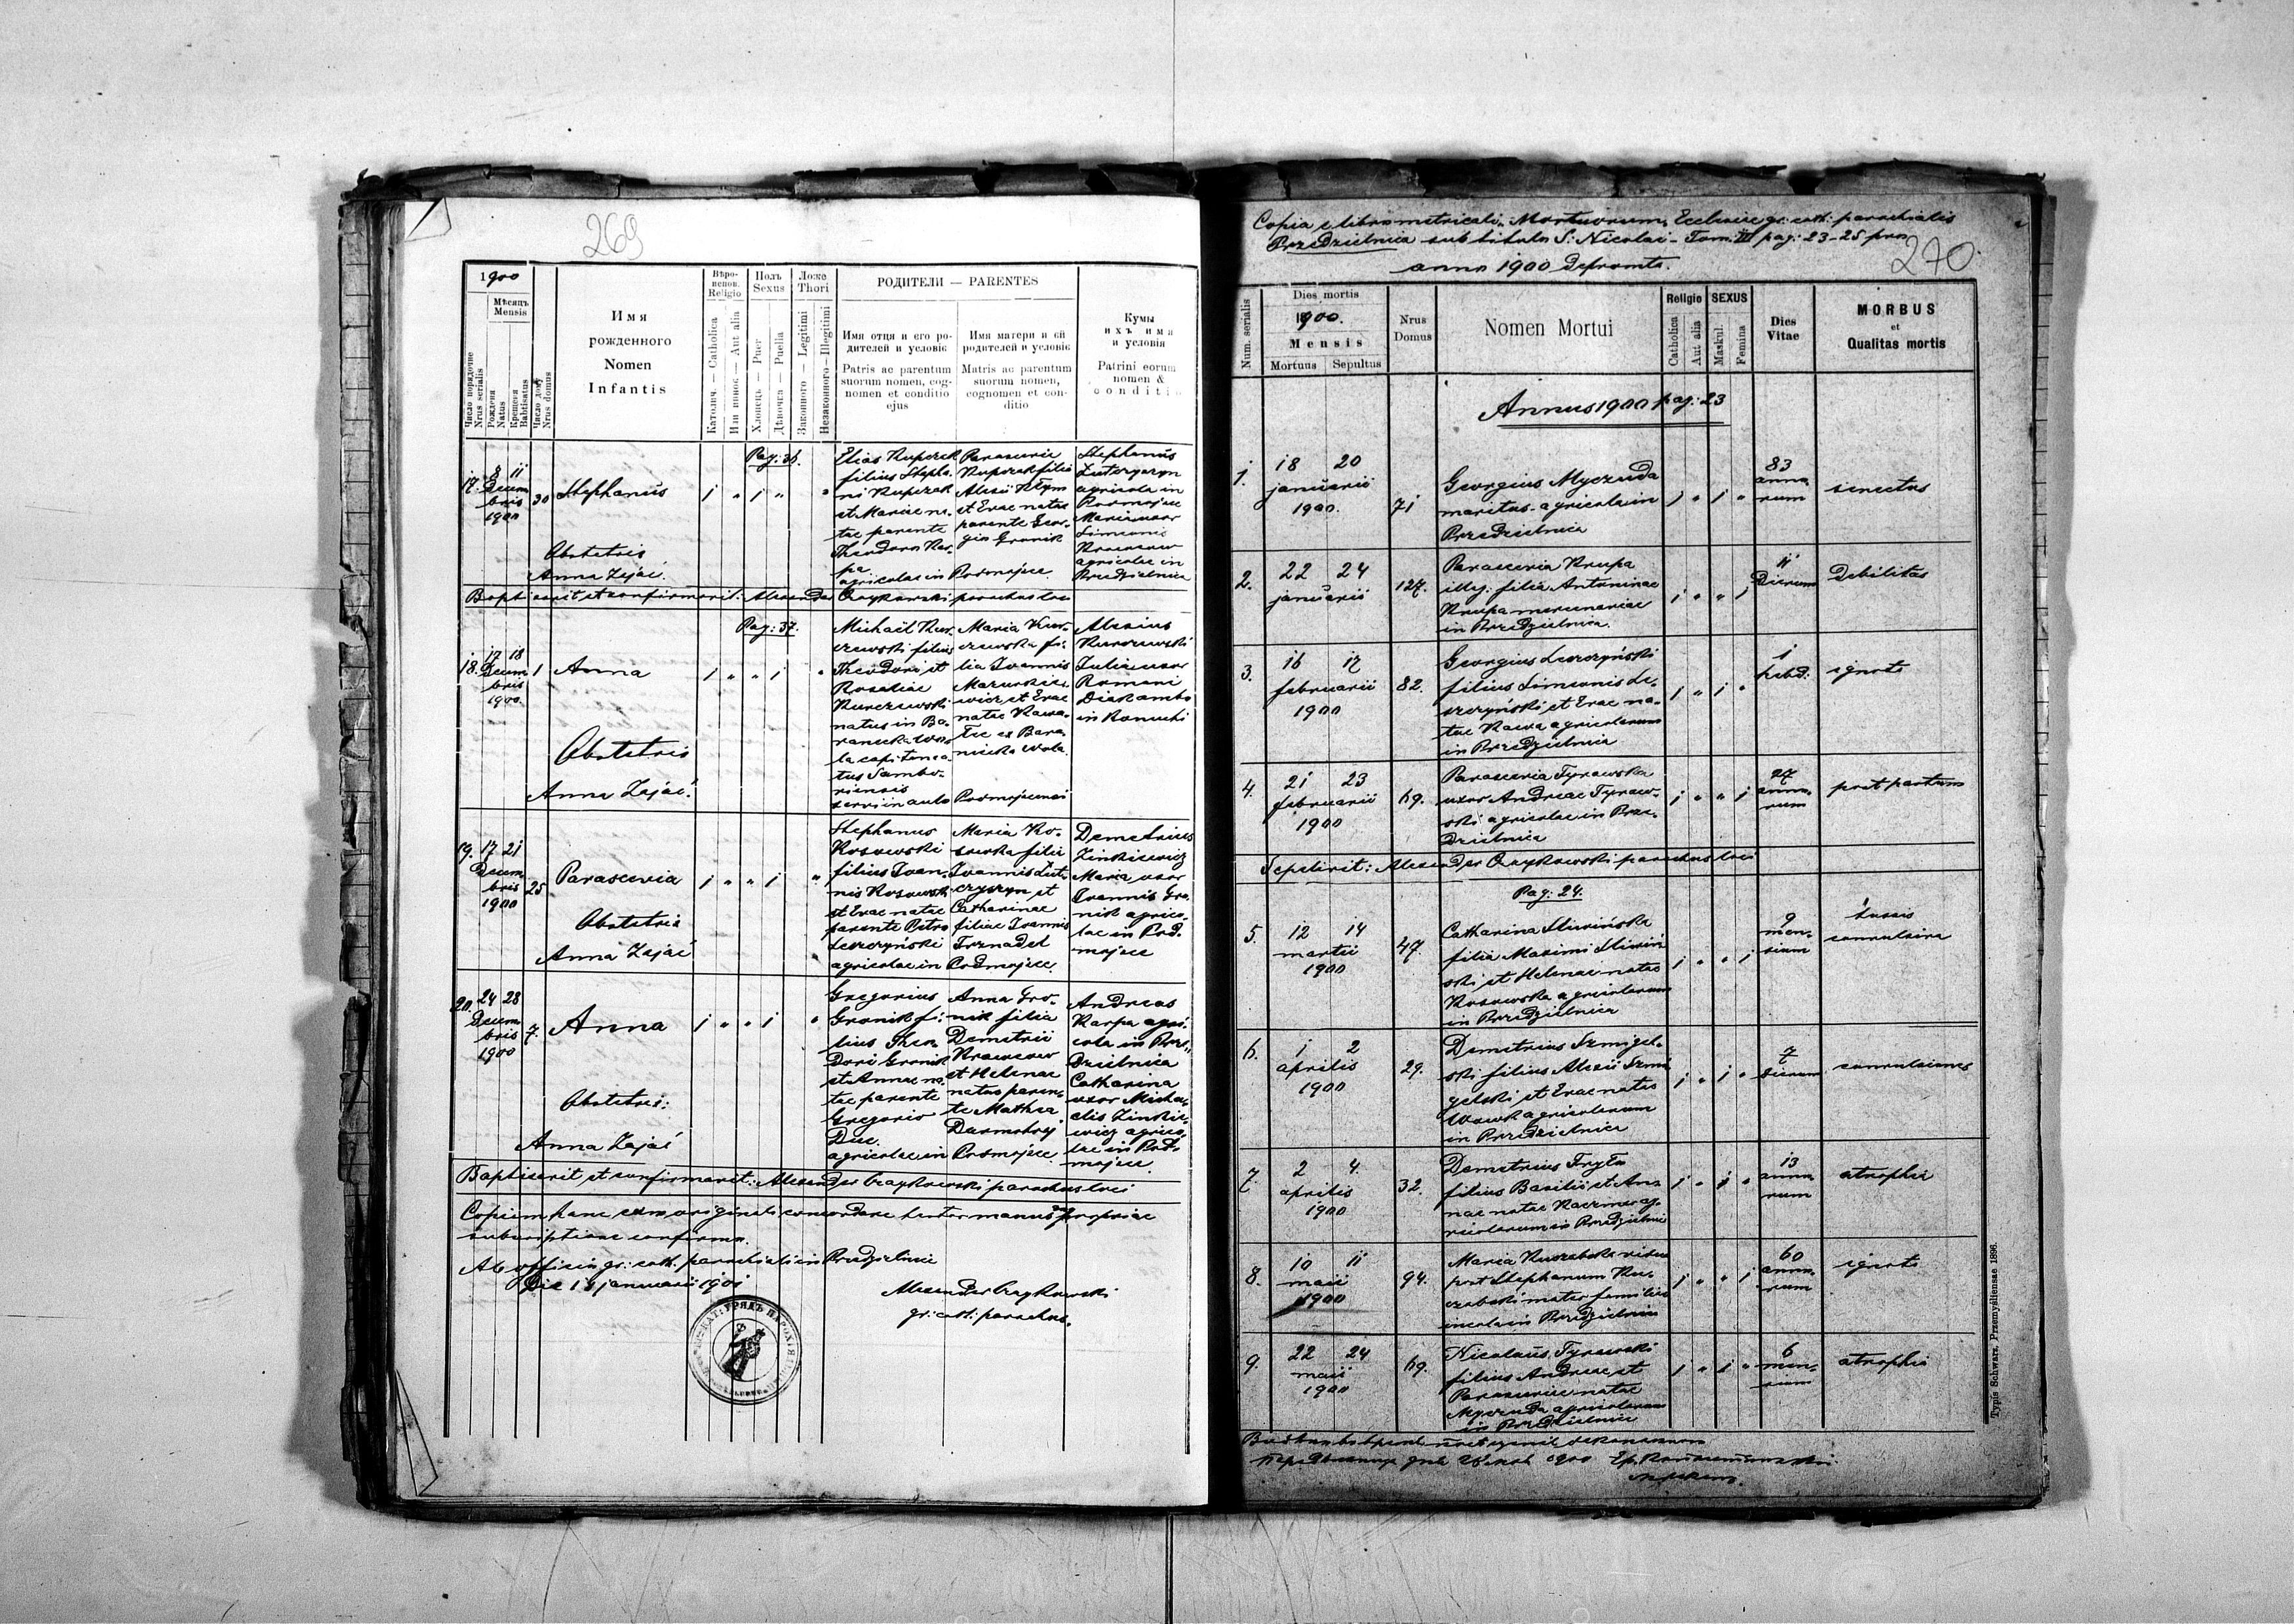 269
1900
Мѣсяць
Mensis
Число порядочне
Nrus serialis
Рожденя
Natus
Крещеня
Babtisatus
Число дому
Nrus domus
Имя
рожденного
Nomen
Infantis
Вѣро-
испов.
Religio
Католич. — Catholica
Или иннос. — Aut alia
Полъ
Sexus
Хлопець — Puer
Дѣвочка — Puella
Ложе
Thori
Законного — Legitimi
Незаконного — Illegitimi
РОДИТЕЛИ — PARENTES
Имя отця и его ро-
дителей и условіє
Patris ac parentum
suorum nomen, cog-
nomen et conditio
ejus
Имя матери и єй
родителей и условіє
Matris ac parentum
suorum nomen,
cognomen et con-
ditio
Кумы
ихъ имя
и условія
Patrini eorum
nomen &
conditio
Pag: 36.
17. 8 11
Decem
bris
1900
30 Stephanus
Obstetrix
Anna Zając.
Elias Kuperak
filius Stepha-
ni Kuperak
et Mariae na-
tae parente
Theodoro Kar-
pa
agricolae in Podmojsce
Parascevia
Kuperak filia
Alexii Kłym
et Evae natae
parente Geor-
gio Gronik
Stephanus
agricola in
Podmojsce
Maria uxor
Simeonis
agricolae in
Przedzielnica
Baptisavit et confirmavit: Alexander Czajkowski parochus loci
Pag: 37.
18. 17 18
Decem
bris
1900.
1 Anna
Obstetrix
Anna Zając.
Michaël Kur-
czewski filius
Theodori et
Rosaliae
Kurczewski
natus in Ba-
ranicka Wo-
la capitanea-
tus Sambo-
riensis
Maria Kur-
czewska fi-
lia Joannis
et Evae
natae Kawa-
ex Bara-
nicka Wola.
Alexius
Kurczewski
Julia uxor
Romani
19. 17 21
Decem
bris
1900
25 Parascevia
Obstetrix
Anna Zając
Stephanus
Kosowski
filius Joan-
nis Kosowski
et Evae natae
parente Petro
Leszczyński
agricolae in Podmojsce.
Maria Ko-
sowska filia
Joannis
et
Catharinae
filiae Joannis
Trznadel
Demetrius
Zinkiewicz
Maria uxor
Joannis Gro-
nik agrico-
lae in Pod-
mojsce
20. 24 28
Decem
bris
1900
7. Anna
Obstetrix:
Anna Zając
Gregorius
Gronik fi-
lius Theo-
dori Gronik
et Annae na-
tae parente
Gregorio
Duc.
agricolae in Podmojsce
Anna Gro-
nik filia
Demetrii
et Helenae
natae paren-
te Mathia
Andreas
Karpa agri-
cola in Prze-
dzielnica
Catharina
uxor Micha-
elis Zinkie-
wicz agrico-
lae in Pod-
mojsce.
Baptisavit et confirmavit: Alexander Czajkowski parochus loci
Copiam hanc cum originali concordare testor manus propriae
subscriptione confirmo.
Ab officio gr: cath. parochiali in Przedzielnica
Die 13 januarii 1901
Alexander Czajkowski
gr: cath: parochus.
Copia e libro metricali Mortuorum, Ecclesiae gr: cath: parochialis
Przedzielnica sub titulo S: Nicolai – Tom. III pag: 23–25 pro
anno 1900 depromta.
270
Num. serialis
Dies mortis
1900.
Mensis
Mortuus Sepultus
Nrus
Domus
Nomen Mortui
Religio
Catholica
Aut alia
SEXUS
Maskul.
Femina
Dies
Vitae
MORBUS
et
Qualitas mortis
Annus 1900 pag: 23
1. 18 20
januarii
1900.
71
Georgius Myczuda
maritus - agricola in
Przedzielnica
83
anno-
rum
senectus
2. 22 24
januarii
127.
Parascevia Krupa
illeg: filia Antoninae
Krupa mercenariae
in Przedzielnica.
11
dierum
Debilitas
3. 16 17
februarii
1900
82.
Georgius Leszczyński
filius Simeonis Le-
szczyński et Evae na-
tae Kawa agricolarum
in Przedzielnica
1
hebd.
ignota
4. 21 23
februarii
1900
69.
Parascevia Tyrawska
uxor Andreae Tyraw-
ski agricolae in Prze-
dzielnica
27
anno-
rum
post partum
Sepelivit: Alexander Czajkowski parochus loci
Pag: 24.
5. 12 14
martii
1900
47.
Catharina Śliwińska
filia Maximi Śliwiń
ski et Helenae natae
Kosowska agricolarum
in Przedzielnica
9
men-
sium
tussis
convulsiva
6. 1 2
aprilis
1900
29.
Demetrius Szmigel-
ski filius Alexii Szmi
gelski et Evae natae
agricolarum
in Przedzielnica
7
dierum
convulsiones
7. 2 4
aprilis
1900
32.
Demetrius Fryta
filius Basilii et An-
nae natae Kaczmar ag-
ricolarum in Przedzielnica
13
anno-
rum
atrophia
8. 10 11
maii
1900
94.
Maria vidua
post Stephanum
mater familias
in Przedzielnica
60
anno-
rum
ignota
9. 22 24
maii
1900
69.
Nicolaus Tyrawski
filius Andreae et
Parasceviae natae
Myczuda agricolarum
in Przedzielnica
6
men-
sium
atrophia
Typis Schwarz. Przemyśliensae 1896.